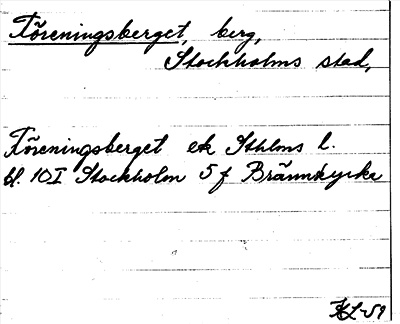 Föreningsberget, berg,
Stockholms stad,
Föreningsberget ek Sthlms l.
bl. 10I Stockholm 5 f Brännkyrka
HL-59